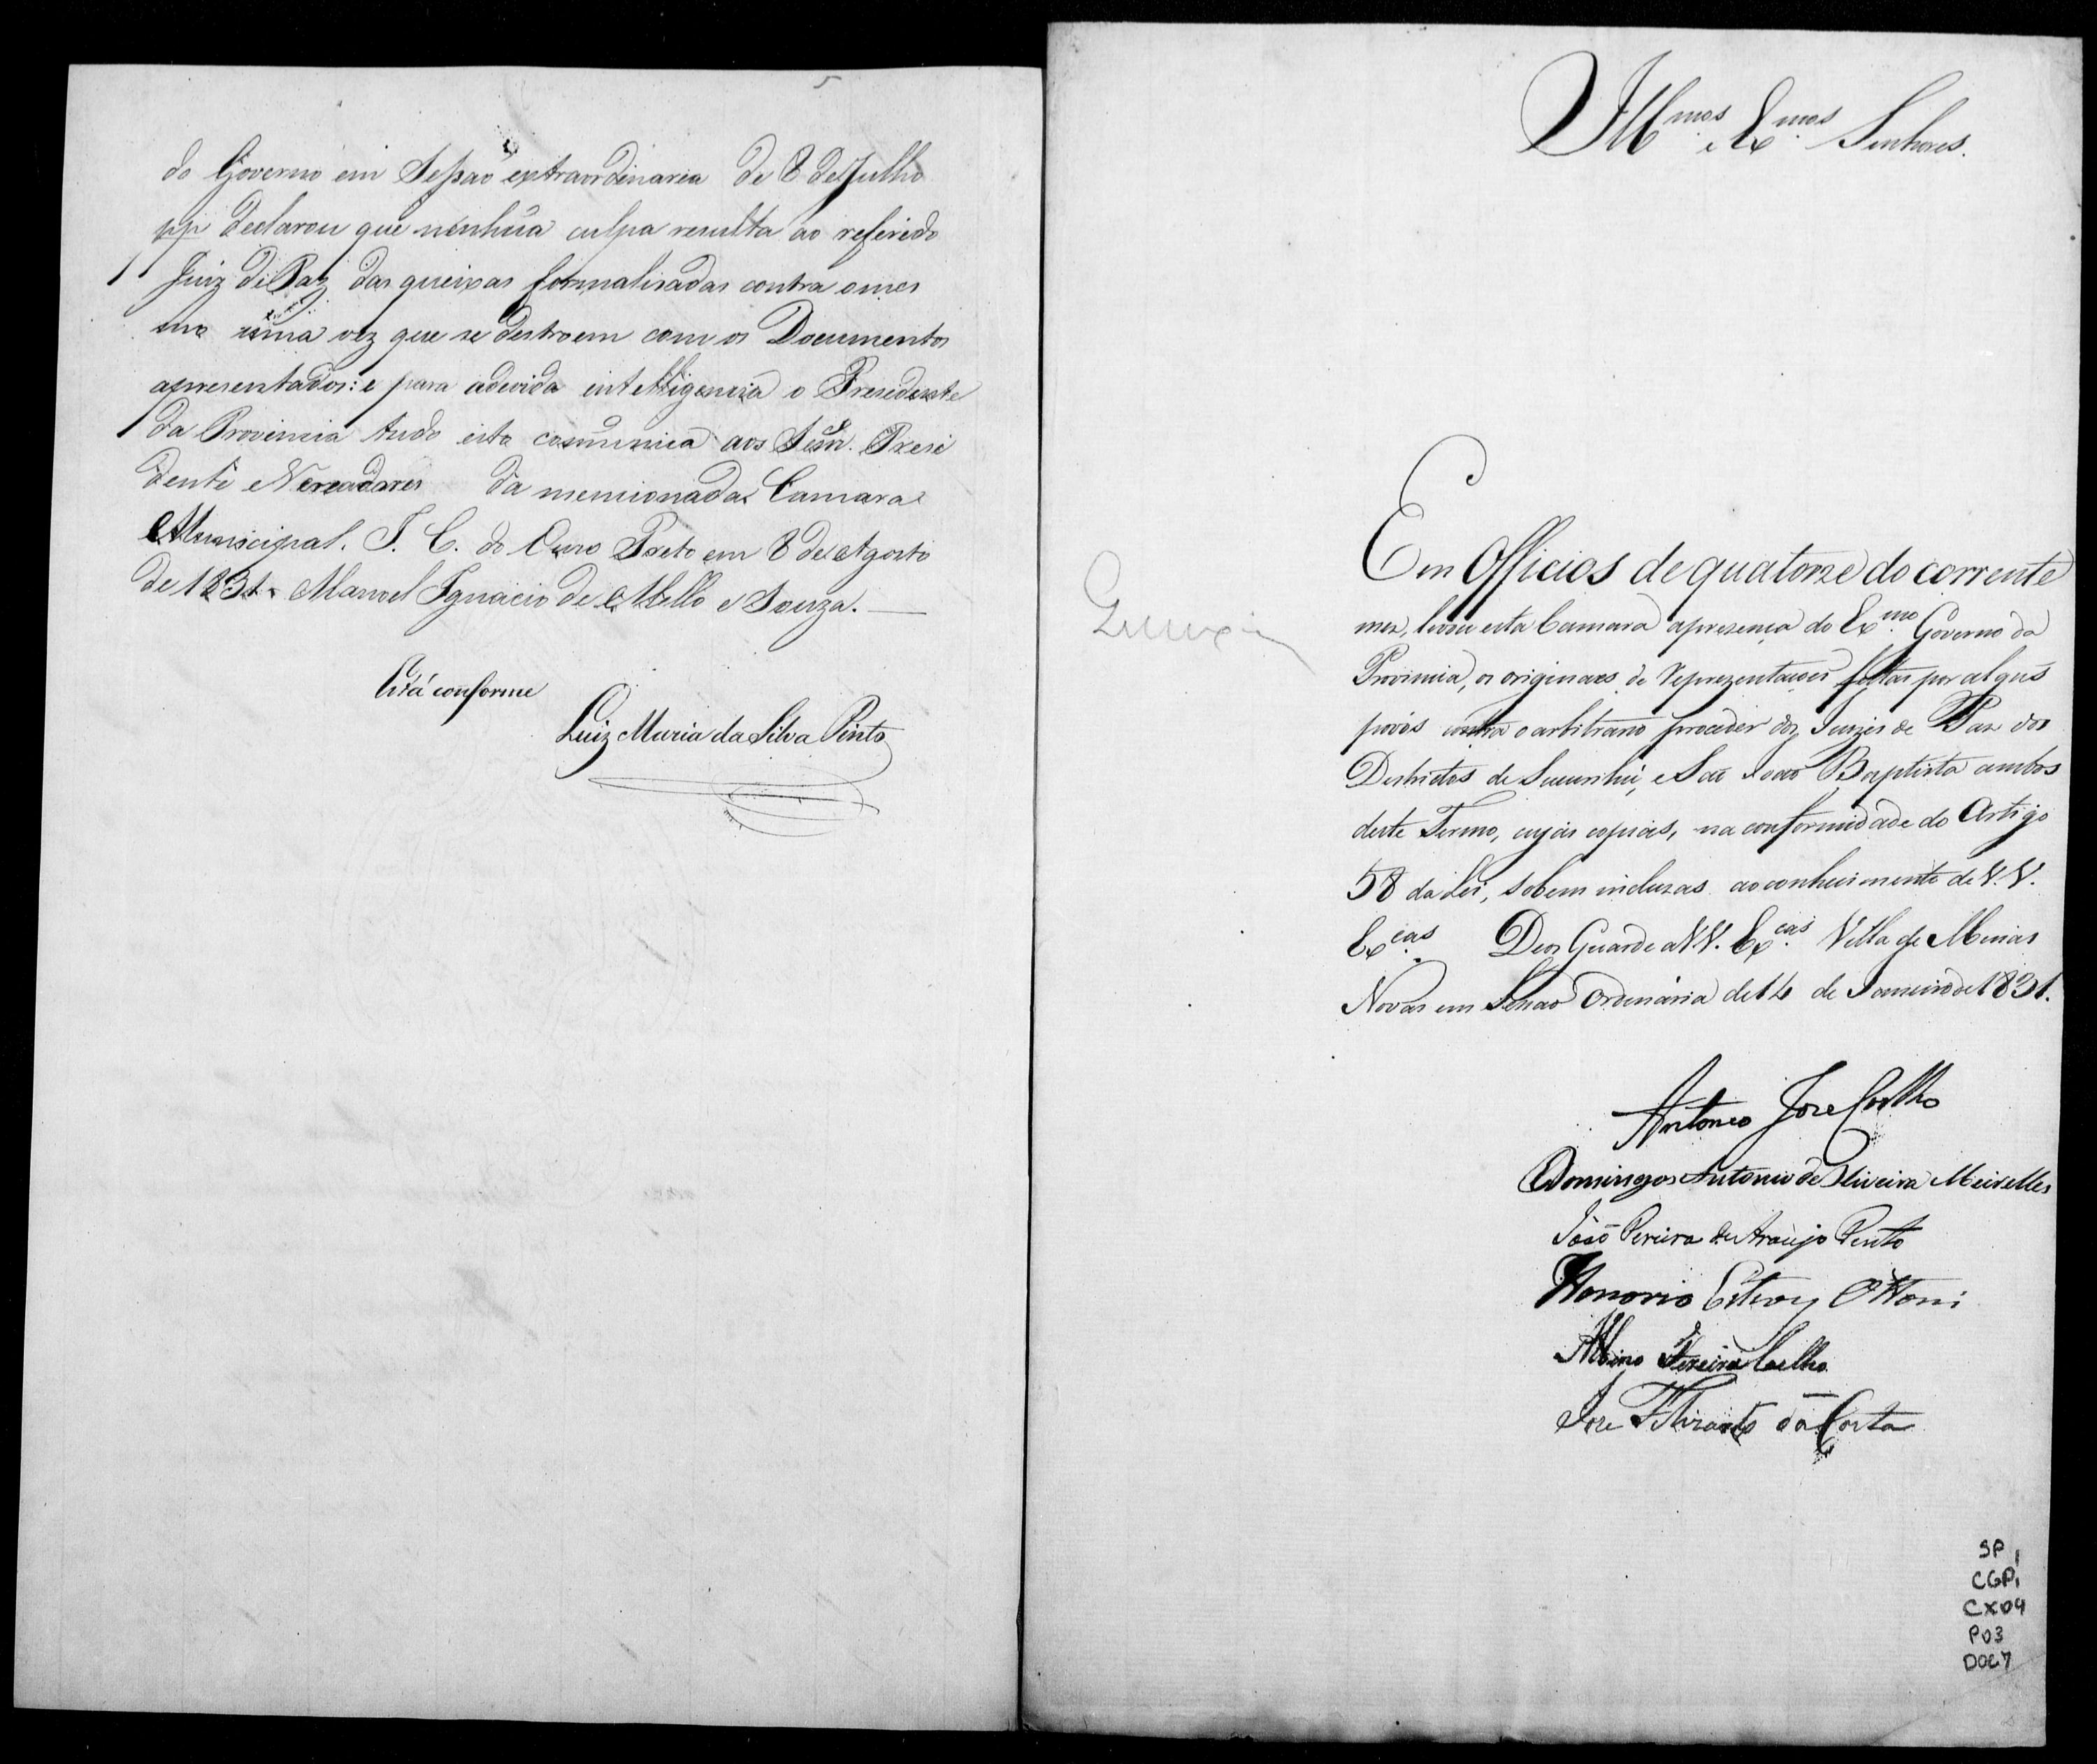 5
do Governo em Sessaõ extraordinaria de 8 de Julho
pp declarou que nenhũa culpa resulta ao referido
Juiz de Paz das queixas formalisadas contra o mes
mo uma vez que se destroem com os Documentos
apresentados: e para a devida intelligencia o Presidente
da Provincia tudo isto comunica aos Senr. Presi
dente e Vereadores da mencionada Camara
Municipal. I. C. do Ouro Preto em 8 de Agosto
de 1831. Manoel Ignacio de Mello e Souza.
Está conforme
Luiz Maria da Silva Pinto
Illmos e Exmos Senhores.
Em Officios de quatorze do corrente
mez, levou esta Camara a presença do Exmo Governo da
Provincia, os originaes de reprezentaçoes feitas por algũs
povos contra o arbitrario proceder dos Juizes de Paz dos
Destrictos de Sucurihú, e Saõ Joaõ Baptista ambos
deste Termo, cujas copias, na conformidade do Artigo
58 da Lei, sobem incluzas ao conhecimento de V.V.
Excas. Deos Guarde a VV. Excas. Villa de Minas
Novas em Sessaõ Ordinaria de 14 de Janeiro de 1831.
Antonio Joze Coelho
Domingos Antonio de Oliveira Meirelles
Joaõ Pereira de Araujo Pinto
Honorio Esteves Ottoni
Albino Pereira Coelho
Joze da Costa
SP
CGP1
CX04
P03
DOC7